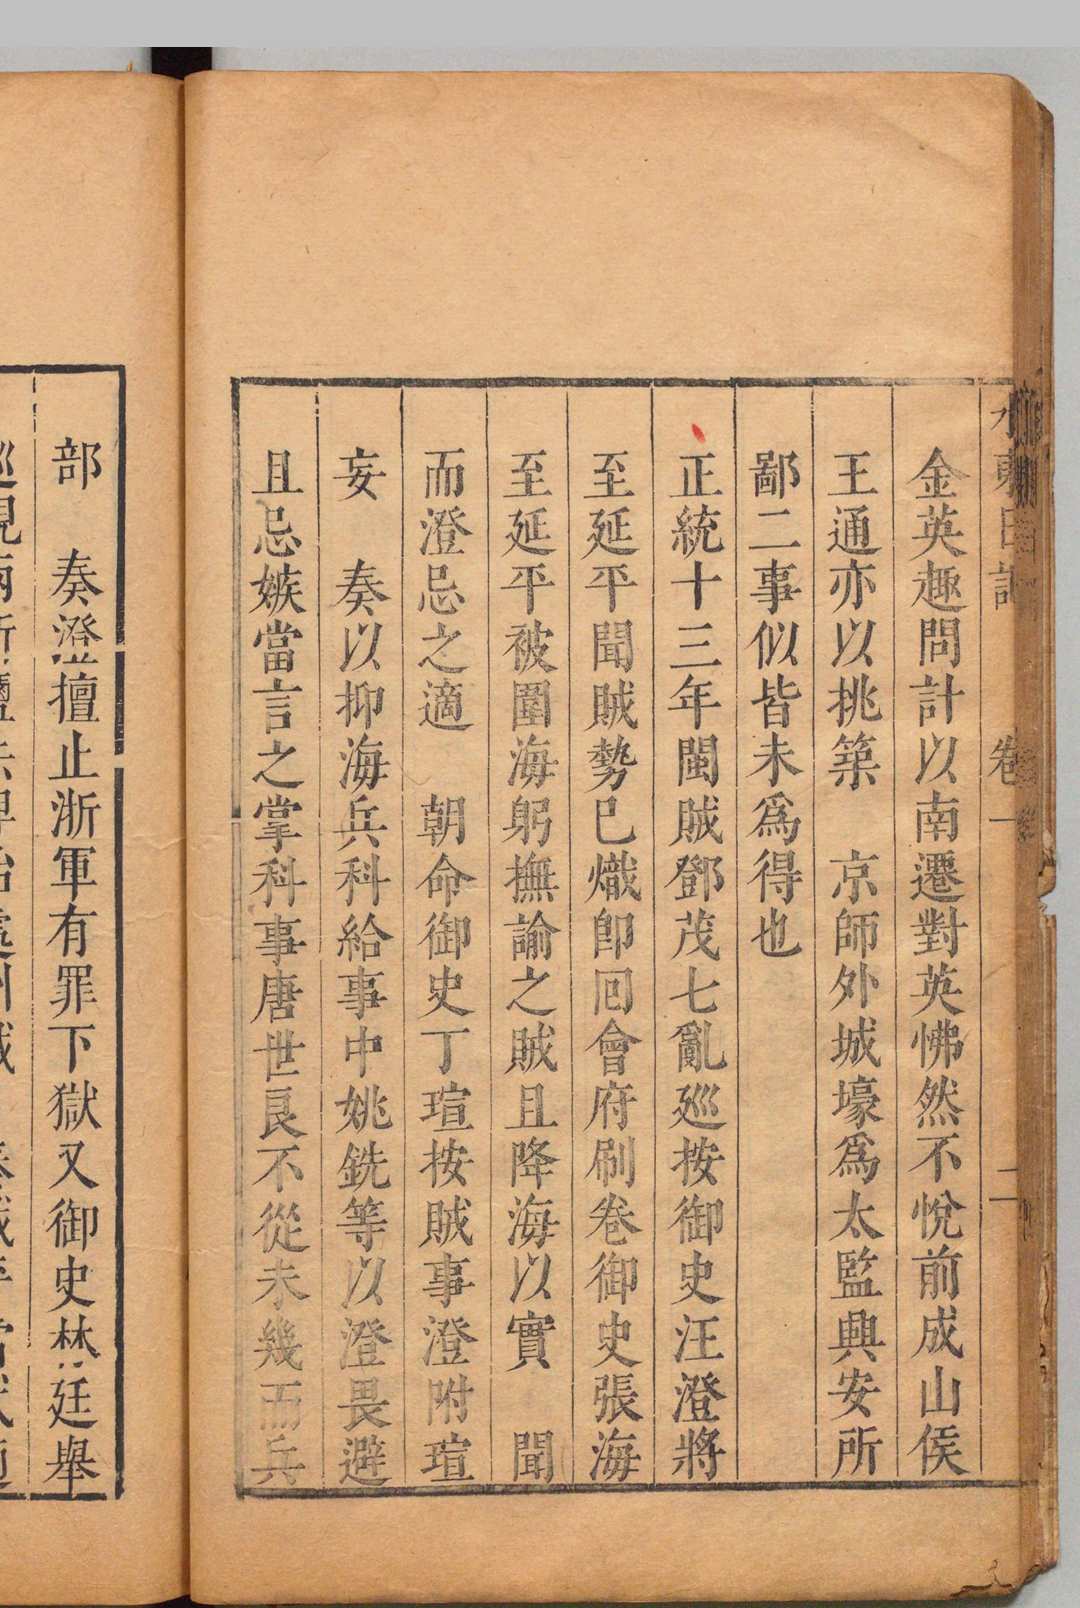 金英趣問計以南遷對英怫然不悅前成山侯
王通亦以挑築　京師外城壕爲太監興安所
鄙二事似皆未爲得也
正統十三年閩賊鄧茂七亂廵按御史汪澄將
至延平聞賊勢已熾卽囘會府刷卷御史張海
至延平被圍海躬撫諭之賊且降海以實　聞
而澄忌之適　朝命御史丁瑄按賊事澄附瑄
妄　奏以抑海兵科給事中姚銑等以澄畏避
且忌嫉當言之掌科事唐世良不從未幾而兵
部　奏澄擅止浙軍有罪下獄又御史林廷舉